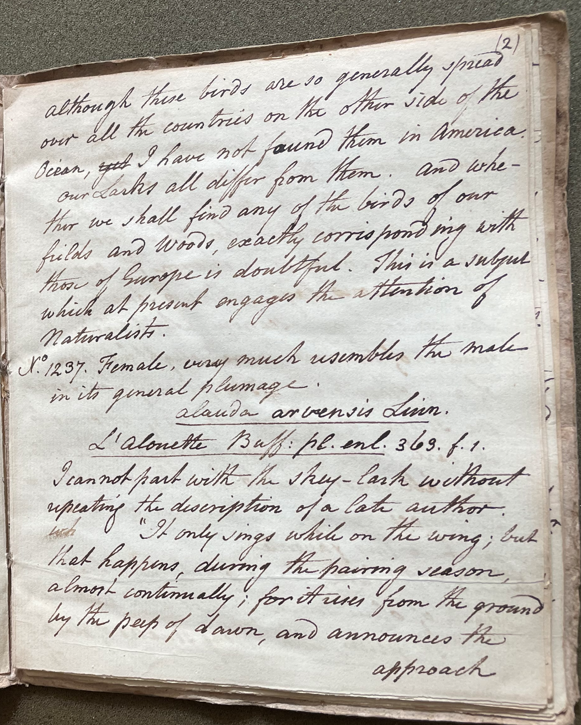 (2)
although these birds are so generally spread
over all the countries on the other side of the
Ocean, yet I have not found them in America.
our Larks all differ from them. And whe-
ther we shall find any of the birds of our
fields and Woods, exactly corrisponding with
those of Europe is doubtful. This is a subject
which at present engages the attention of
Naturalists.
No. 1237. Female, very much resembles the male
in its general plumage.
alauda arvensis Linn.
L'Alouette Buff: pl. enl. 363. f. 1.
I cannot part with the skey-lark without
repeating the discription of a late author.
"It only sings while on the wing; but
that happens, during the pairing season,
almost continually; for it rises from the ground
by the peep of dawn, and announces the
approach